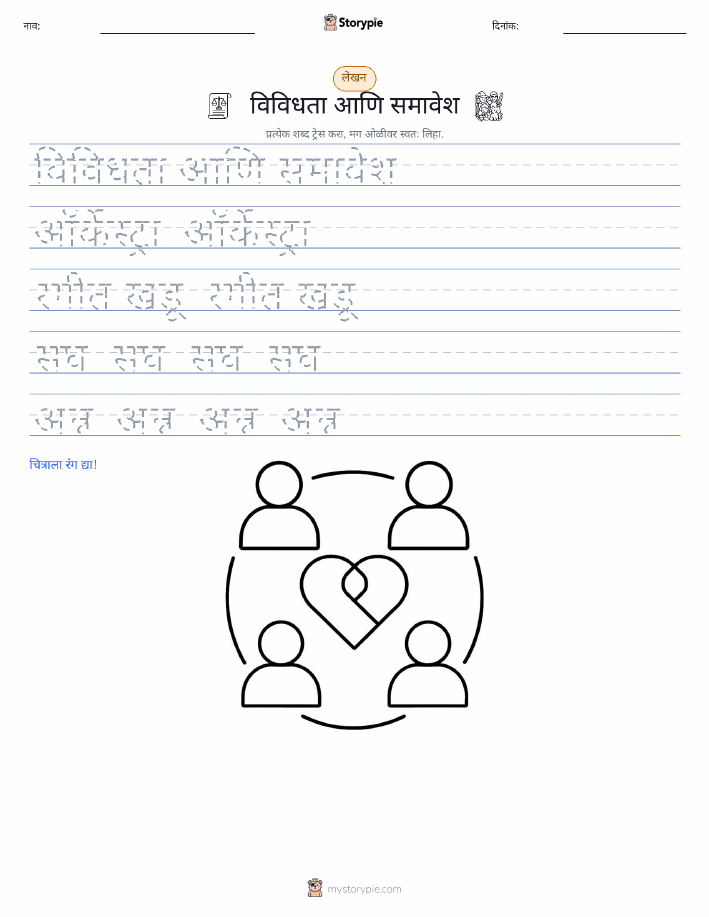 नाव:
Storypie
दिनांक:
लेखन
विविधता आणि समावेश
प्रत्येक शब्द ट्रेस करा, मग ओळीवर स्वतः लिहा.
विविधता आणि समावेश
ऑर्केस्ट्रा ऑर्केस्ट्रा
रंगीत खडू रंगीत खडू
संघ संघ संघ संघ
अन्न अन्न अन्न अन्न
चित्राला रंग द्या!
mystorypie.com